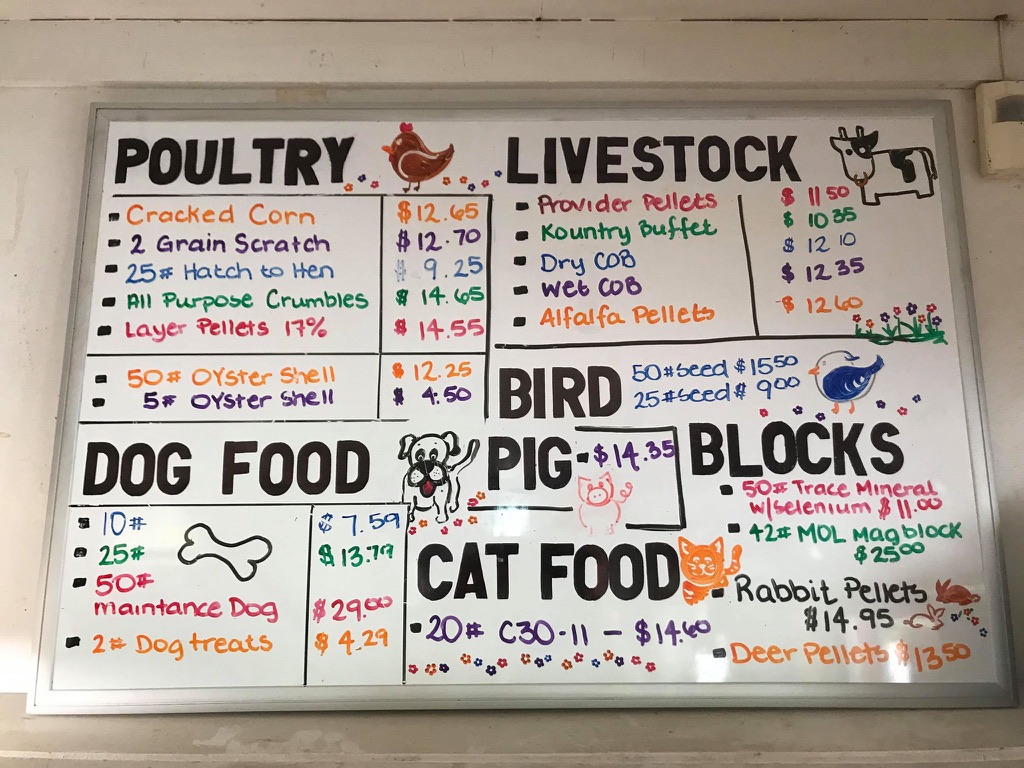 POULTRY
- Cracked Corn $12.65
- 2 Grain Scratch $12.70
- 25# Hatch to Hen $ 9.25
- All Purpose Crumbles $ 14.65
- Layer Pellets 17% $ 14.55
- 50# Oyster Shell $ 12.25
- 5# Oyster Shell $ 4.50
LIVESTOCK
- Provider Pellets $ 11 50
- Kountry Buffet $ 10 35
- Dry COB $ 12 10
- Wet COB $ 12 35
- Alfalfa Pellets $ 12 60
BIRD
50#seed $15 50
25#seed $ 9 00
DOG FOOD
- 10# $ 7.59
- 25# $13.79
- 50#
maintance Dog $29.00
- 2# Dog treats $ 4.29
PIG - $14.35
CAT FOOD
- 20# C30-11 - $14.60
BLOCKS
- 50# Trace Mineral
w/selenium $11.00
- 42# MOL Mag block
$25 00
- Rabbit Pellets
$14.95
- Deer Pellets $13 50